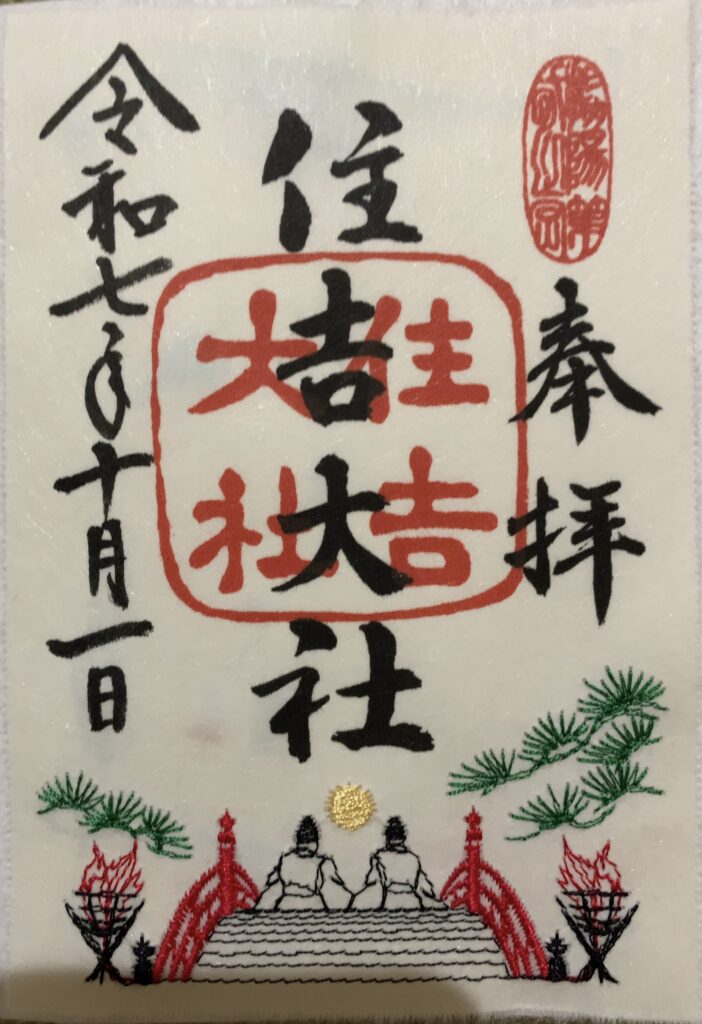 奉拝
住吉大社
住吉
大社
令和七年十月一日